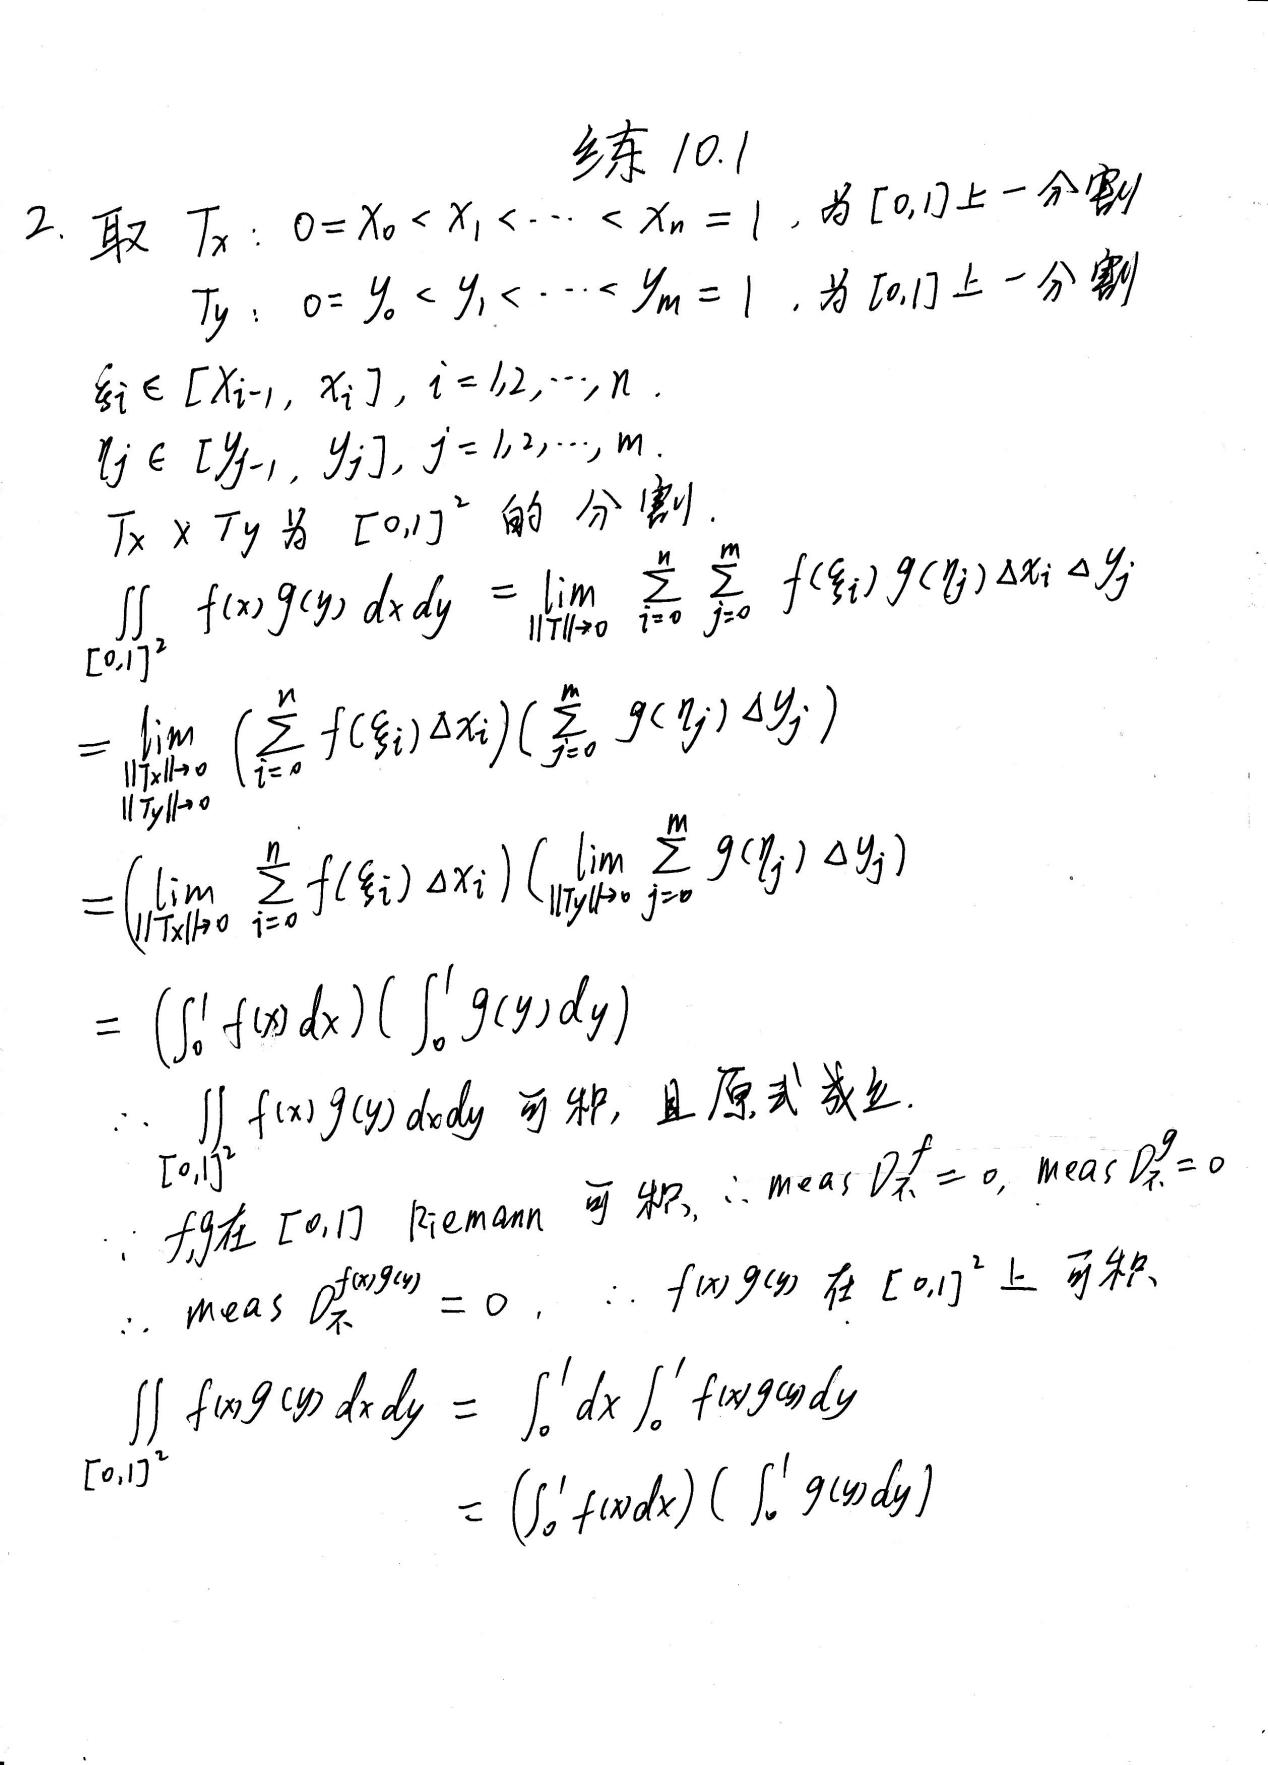 练 10.1
2. 取 Tx : 0 = x₀ < x₁ < ··· < xₙ = 1 , 为 [0,1] 上一分割
Ty : 0 = y₀ < y₁ < ···· < yₘ = 1 , 为 [0,1] 上一分割
ξi ∈ [xi-1, xi], i = 1,2,···, n .
ηj ∈ [yj-1, yj], j = 1,2,···, m .
Tx × Ty 为 [0,1]² 的 分割.
∬_{[0,1]²} f(x) g(y) dx dy = lim_{||T||→0} ∑_{i=0}^{n} ∑_{j=0}^{m} f(ξi) g(ηj) Δxi Δyj
= lim_{||Tx||→0 ||Ty||→0} (∑_{i=0}^{n} f(ξi) Δxi)(∑_{j=0}^{m} g(ηj) Δyj)
= (lim_{||Tx||→0} ∑_{i=0}^{n} f(ξi) Δxi)(lim_{||Ty||→0} ∑_{j=0}^{m} g(ηj) Δyj)
= (∫₀¹ f(x) dx)(∫₀¹ g(y) dy)
∴ ∬_{[0,1]²} f(x) g(y) dx dy 可积, 且原式成立.
∵ f,g在 [0,1] Riemann 可积, ∴ meas D_不^f = 0, meas D_不^g = 0
∴ meas D_不^{f(x)g(y)} = 0 , ∴ f(x) g(y) 在 [0,1]² 上 可积、
∬_{[0,1]²} f(x) g(y) dx dy = ∫₀¹ dx ∫₀¹ f(x) g(y) dy
= (∫₀¹ f(x) dx)(∫₀¹ g(y) dy)